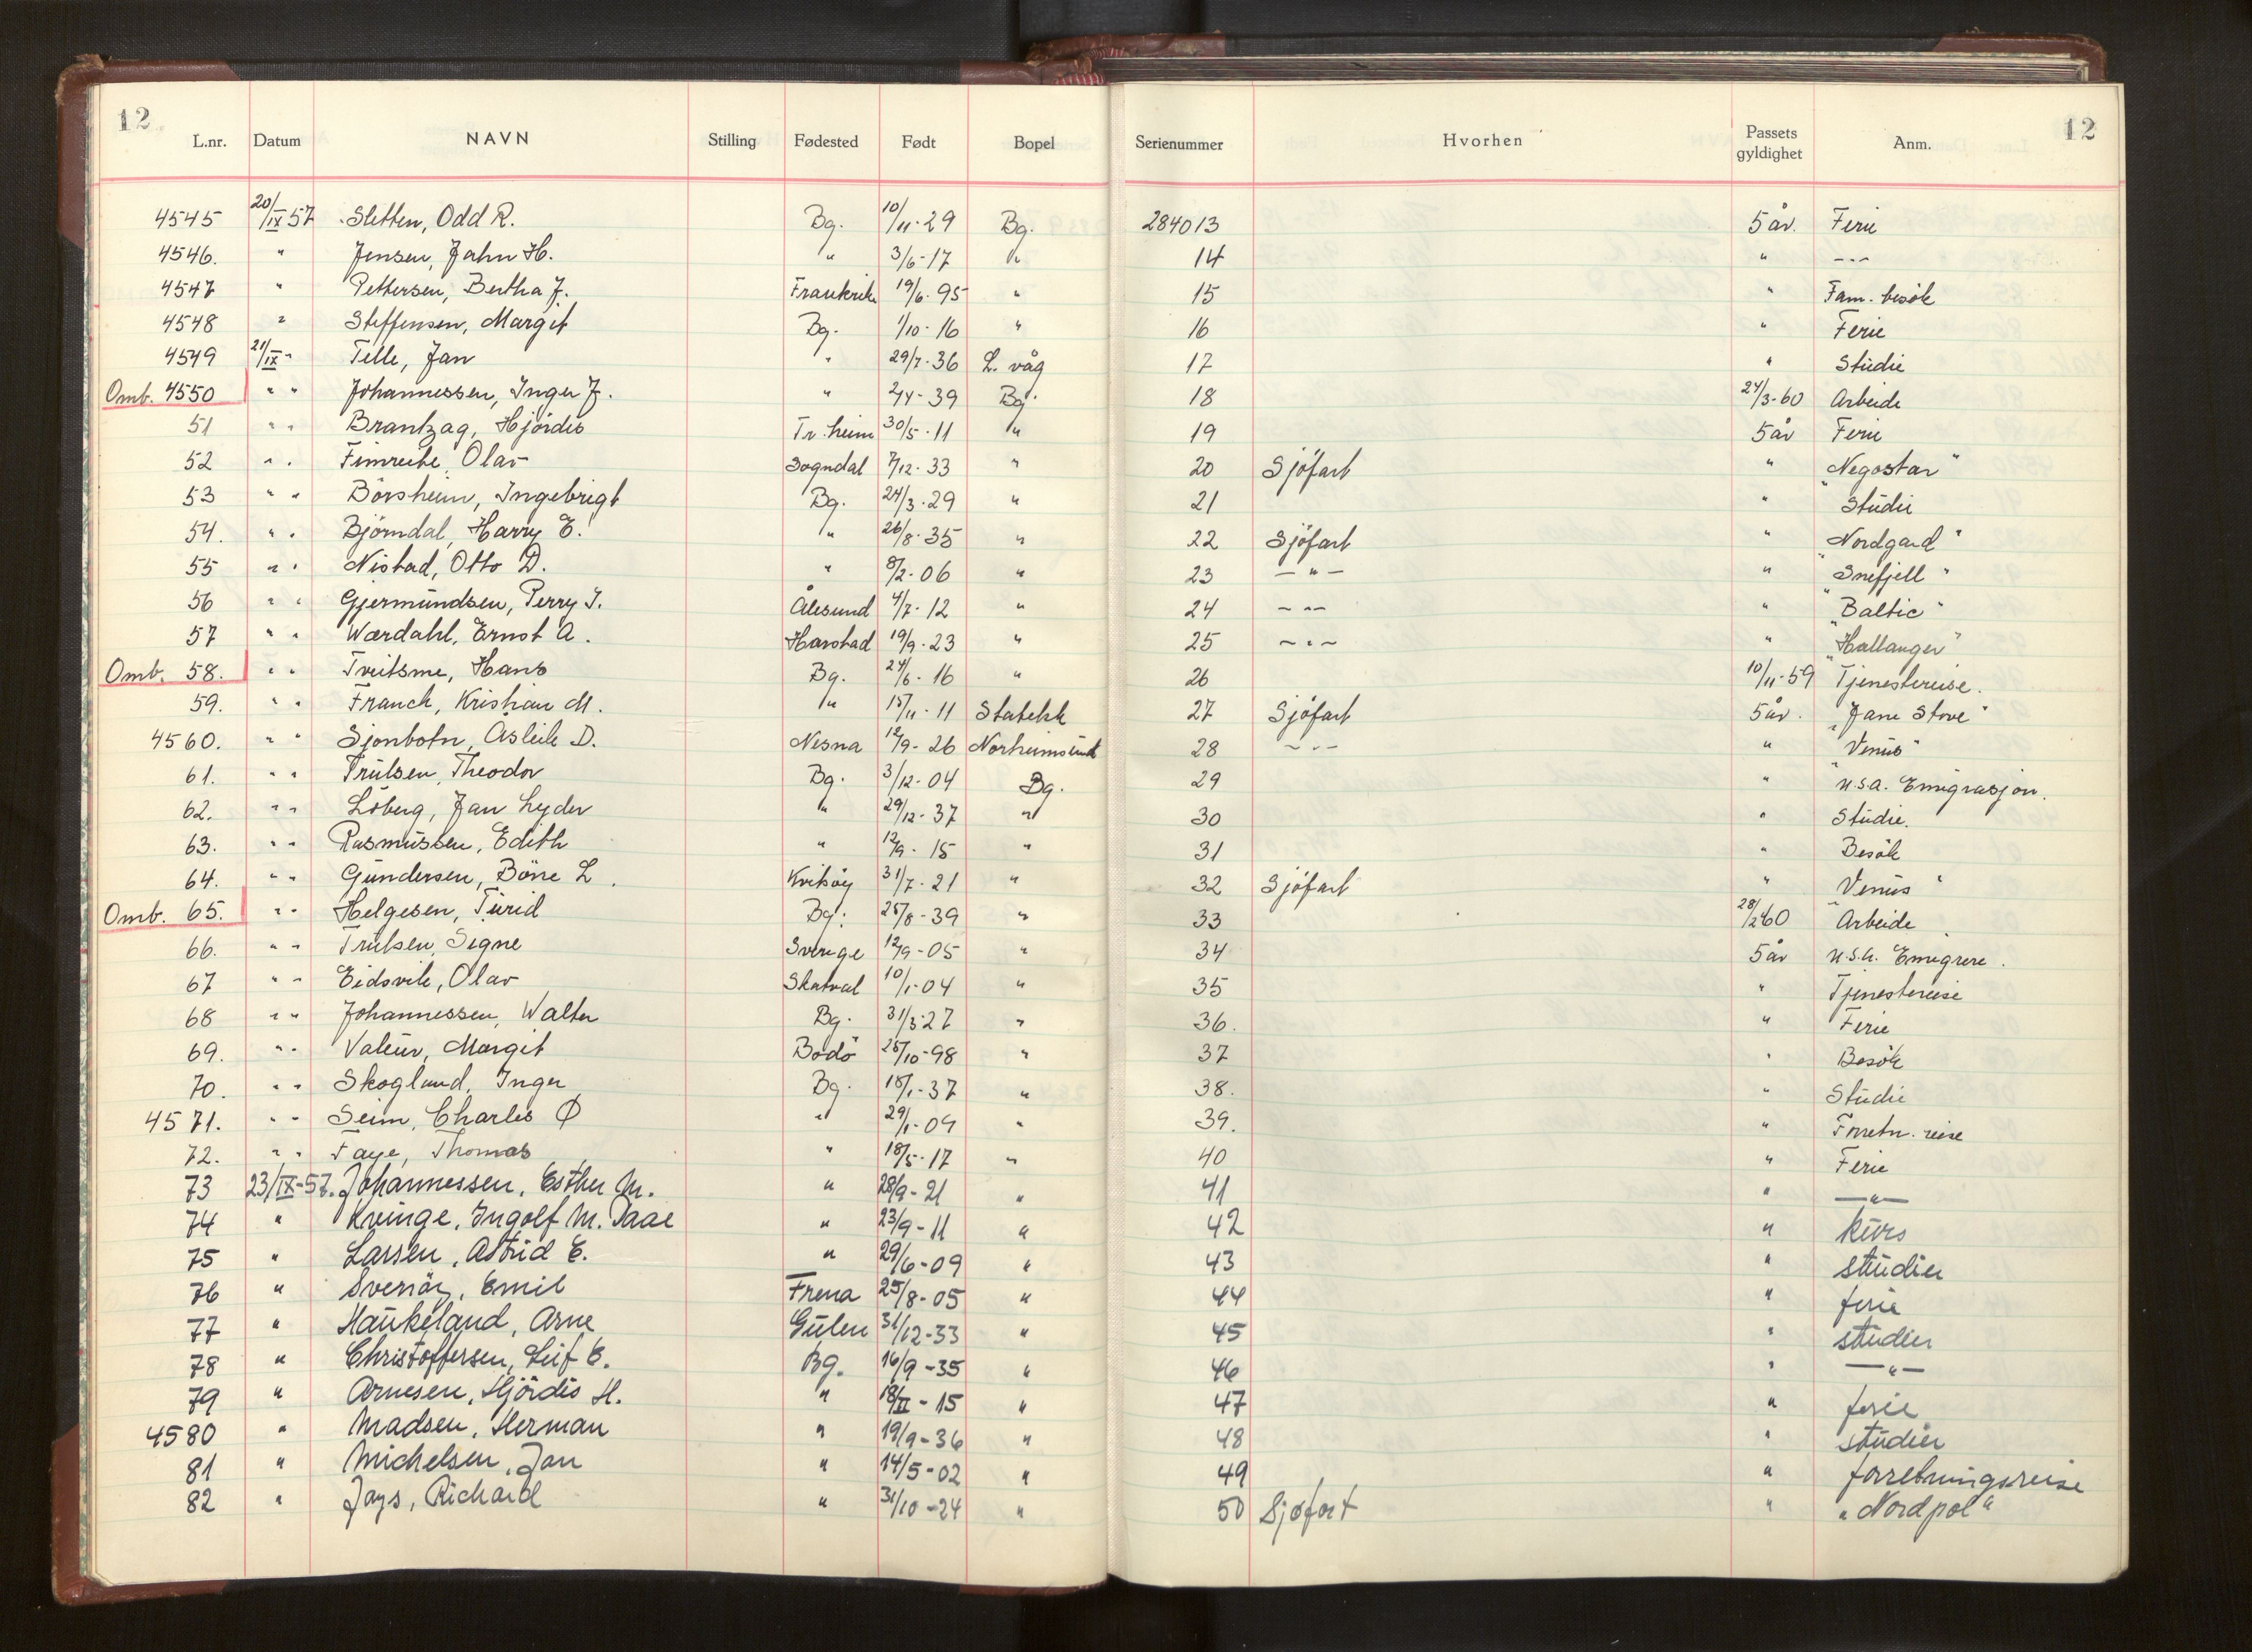 12 12
L.nr. Datum NAVN Stilling Fødested Født Bopel Serienummer Hvorhen Passets gyldighet Anm.
4545 20/IX 57 Sletten, Odd R. Bg. 10/11-29 Bg. 284013 5 år. Ferie
4546. " Jensen, John H. " 3/6-17 " 14 " -"-
4547 " Pettersen, Bertha J. Frankrike 19/6-95 " 15 " Fam. besök
4548 " Steffensen, Margit Bg. 1/10-16 " 16 " Ferie
4549 21/IX " Telle, Jan " 29/7-36 L. våg 17 " Studie
Omb. 4550 " " Johannessen, Inger J. " 2/4-39 Bg. 18 24/3-60 Arbeide
51 " " Brantzag, Hjördis Tr.heim 30/5-11 " 19 5 år Ferie
52 " " Fimreite, Olav Sogndal 7/12-33 " 20 Sjöfart " "Negostar"
53 " " Börsheim, Ingebrigt Bg. 24/3-29 " 21 " Studie
54. " " Björndal, Harry E. " 26/8-35 " 22 Sjöfart " "Nordgard"
55 " " Nistad, Otto D. " 8/2-06 " 23 -"- " "Snefjell"
56 " " Gjermundsen, Perry J. Ålesund 4/7-12 " 24 -"- " "Baltic"
57 " " Wærdahl, Ernst A. Harstad 19/9-23 " 25 -"- " "Hallanger"
Omb. 58. " " Tveitsme, Hans Bg. 24/6-16 " 26 10/11-59 Tjenestereise.
59. " " Franck, Kristian M. " 15/11-11 Stabekk 27 Sjöfart 5 år. "Jane Stove"
4560. " " Sjonbotn, Asleik D. Nesna 12/9-26 Norheimsund 28 -"- " "Venus"
61. " " Trulsen, Theodor Bg. 3/12-04 Bg. 29 " U.S.A. Emigrasjon.
62. " " Löberg, Jan Lyder " 29/12-37 " 30 " Studie.
63. " " Rasmussen, Edith " 12/9-15 " 31 " Besök
64. " " Gundersen, Börre L. Kvitsöy 31/7-21 " 32 Sjöfart " "Venus"
Omb. 65. " " Helgesen, Turid Bg. 25/8-39 " 33 28/2-60 Arbeide
66. " " Trulsen, Signe Sverige 12/9-05 " 34 5 år U.S.A. Emigrere.
67 " " Eidsvik, Olav Skatval 10/1-04 " 35 " Tjenestereise
68 " " Johannessen, Walter Bg. 31/3-27 " 36. " Ferie
69. " " Valeur, Margit Bodö 25/10-98 " 37 " Besök
70. " " Skoglund, Inger Bg. 15/1-37 " 38. " Studie
4571. " " Seim, Charles Ø " 29/1-09 " 39. " Forretn. reise
72. " " Faye, Thomas " 18/5-17 " 40 " Ferie
73 23/IX-57. Johannessen, Esther M. " 28/9-21 " 41 " -"-
74 " Kvinge, Ingolf M. Paae " 23/9-11 " 42 " kurs
75 " Larsen, Astrid E. " 29/6-09 " 43 " studier
76 " Emil Frena 25/8-05 " 44 " ferie
77 " Haukeland, Arne Gulen 31/12-33 " 45 " studier
78 " Christoffersen, Leif E. Bg. 16/9-35 " 46 " -"-
79 " Arnesen, Hjördis H. " 18/II-15 " 47 " ferie
4580 " Madsen, Herman " 19/9-36 " 48 " studier
81 " Michelsen, Jan " 14/5-02 " 49 " forretningsreise
82 " Jays, Richard " 31/10-24 " 50 Sjøfart " "Nordpol"